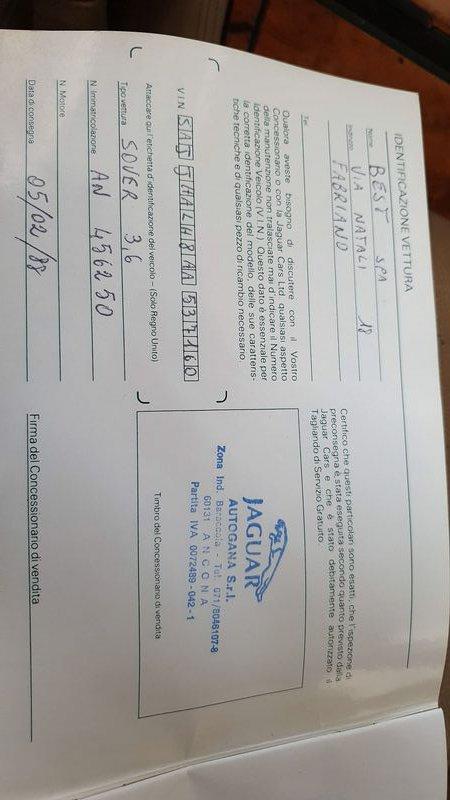 IDENTIFICAZIONE VETTURA
Nome BEST SPA
Indirizzo VIA NATALI 18
FABRIANO
Tel.
Qualora aveste bisogno di discutere con il Vostro
Concessionario o con la Jaguar Cars Ltd. qualsiasi aspetto
della manutenzione non tralasciate mai d'indicare il Numero
Identificazione Veicolo (V.I.N.). Questo dato è essenziale per
la corretta identificazione del modello delle sue caratteris-
tiche tecniche e di qualsiasi pezzo di ricambio necessario.
VIN
Attaccare qui l'etichetta d'identificazione del veicolo – (Solo Regno Unito)
Tipo vettura SOVER 3,6
N. Immatricolazione AN 456250
N. Motore
Data di consegna 05/02/88
Certifico che questi particolari sono esatti, che l'ispezione di
preconsegna è stata eseguita secondo quanto previsto dalla
Jaguar Cars e che è stato debitamente autorizzato il
Tagliando di Servizio Gratuito.
JAGUAR
AUTOGANA S.r.l.
Zona Ind. Baraccola - Tel. 071/8046107-8
60131 ANCONA
Partita IVA 0072489-042-1
Timbro del Concessionario di vendita
Firma del Concessionario di vendita